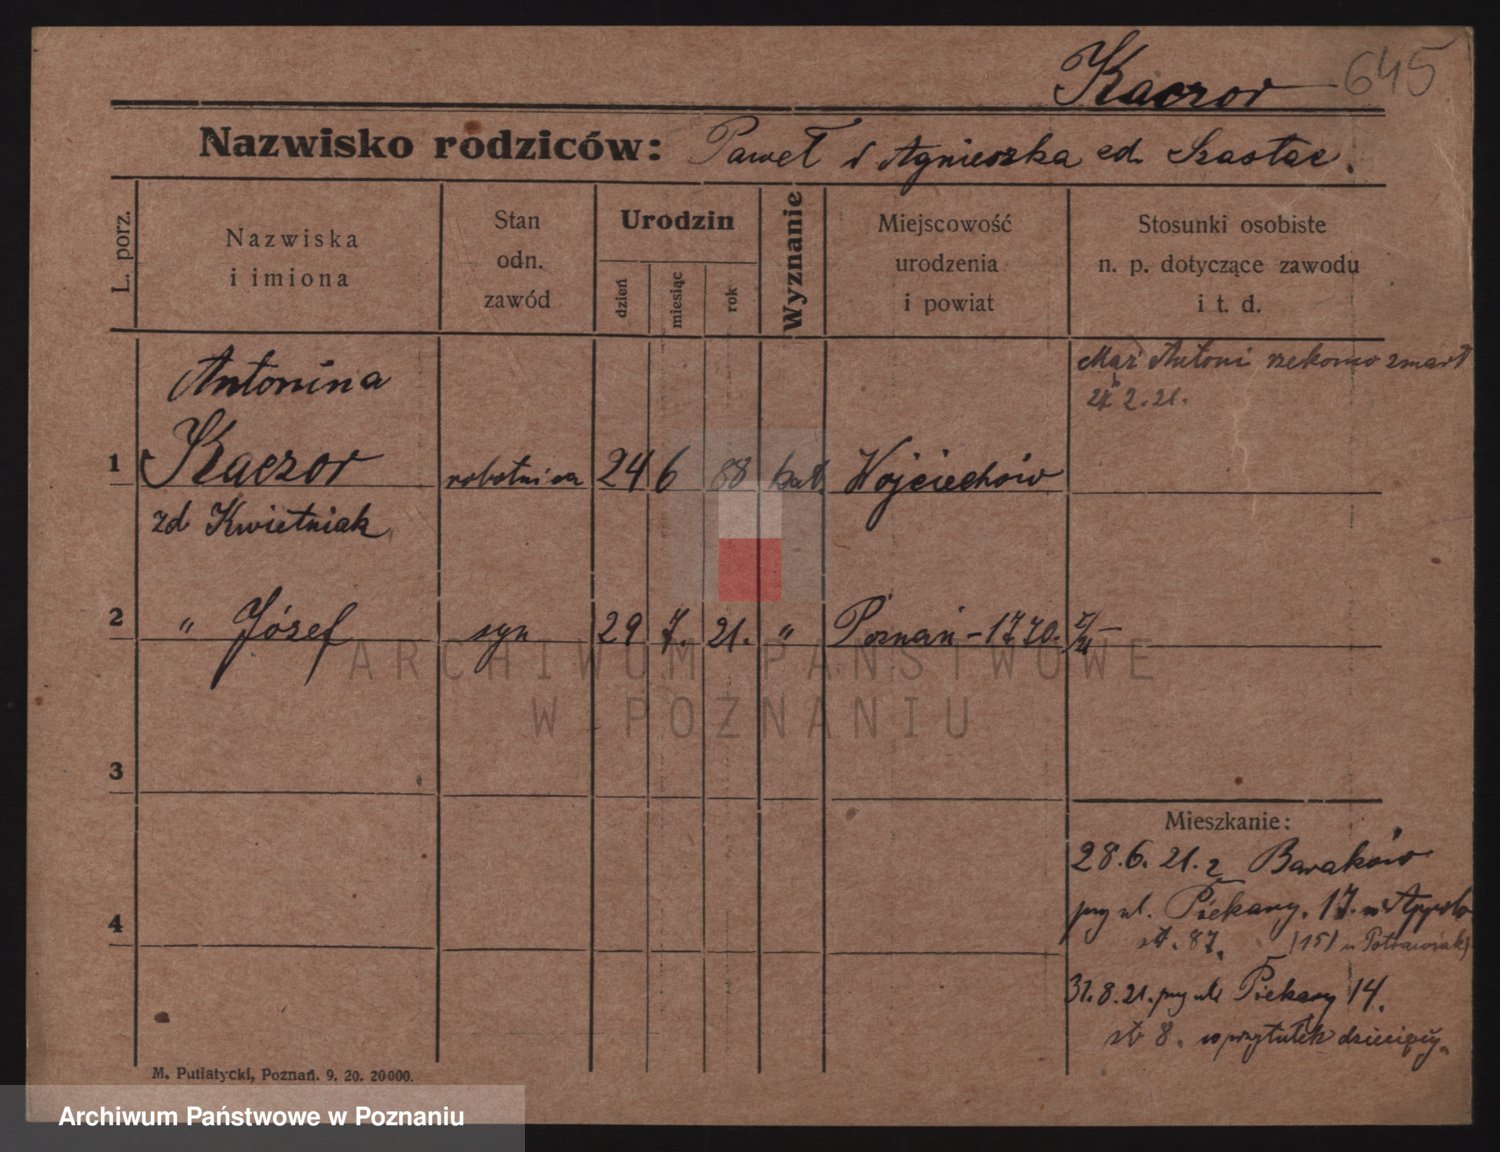 Kaczor 645
Nazwisko rodziców: Paweł i Agnieszka zd. Szastac.
L. porz.
Nazwiska
i imiona
Stan
odn.
zawód
Urodzin
dzień
miesiąc
rok
Wyznanie
Miejscowość
urodzenia
i powiat
Stosunki osobiste
n. p. dotyczące zawodu
i t. d.
Mąż Antoni rzekomo zmarł
2.21.
Antonina
1 Kaczor robotnica 24 6 88 kat Wojciechów
zd Kwietniak
2 " Józef syn 29 7. 21. " Poznań - 1770.
3
4
Mieszkanie:
28.6.21. z Baraków
przy ul. Piekary. 17.
87. (15) u Potrawiak)
31.8.21. przy ul. Piekary 14.
8. w przytułek dziecięcy.
M. Putiatycki, Poznań. 9. 20. 20000.
ARCHIWUM PAŃSTWOWE
W POZNANIU
Archiwum Państwowe w Poznaniu